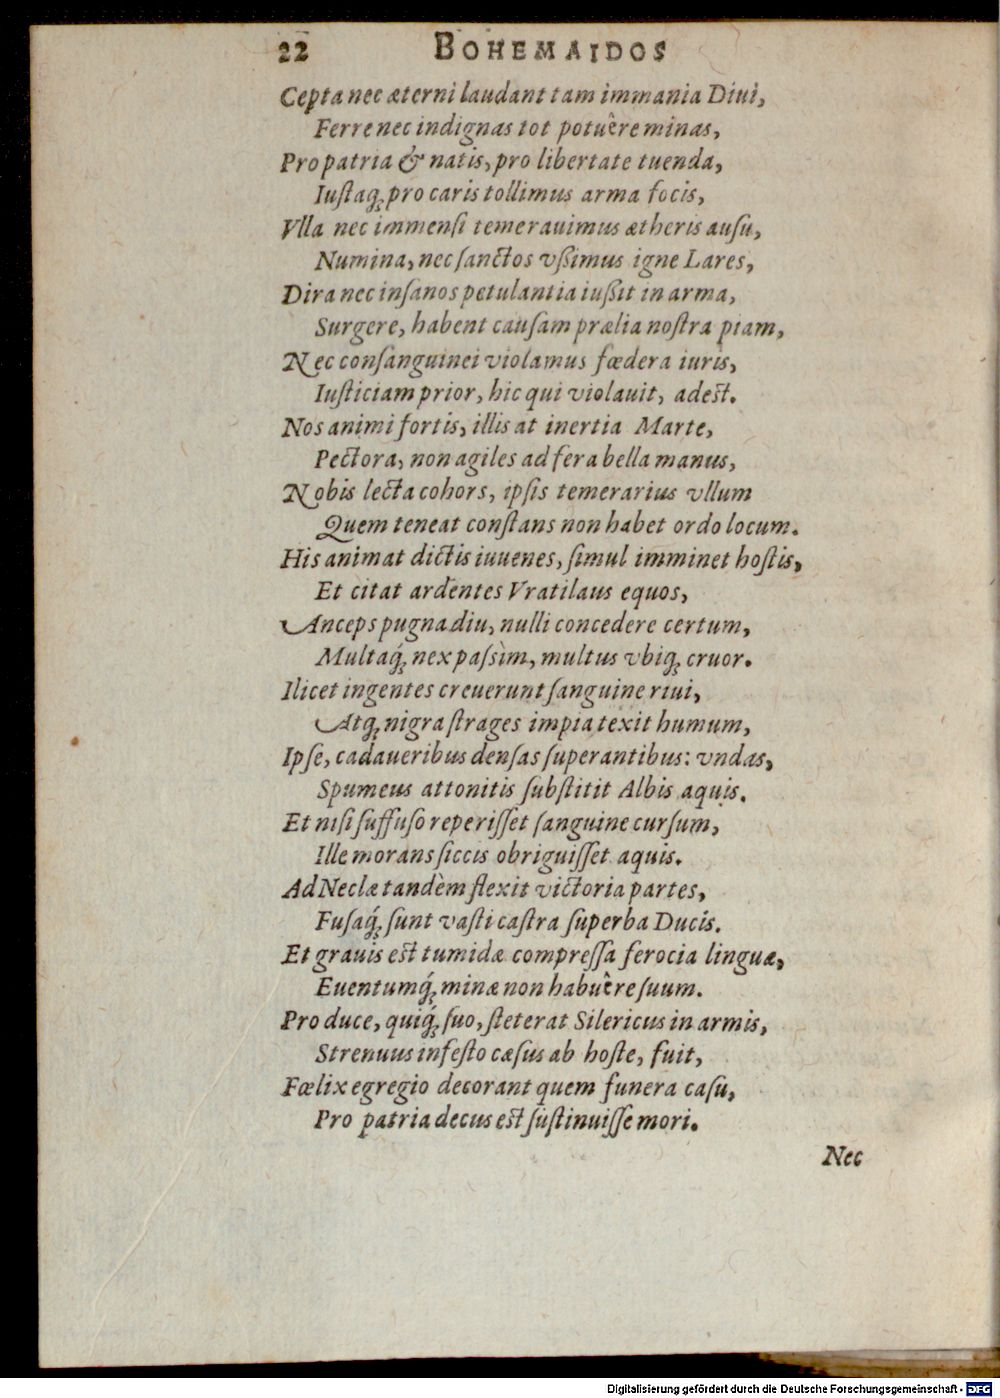 22 BOHEMAIDOS
Cepta nec æterni laudant tam immania Diui,
Ferre nec indignas tot potuêre minas,
Pro patria & natis, pro libertate tuenda,
Iuſtaq; pro caris tollimus arma focis,
Vlla nec immenſi temerauimus ætheris auſu,
Numina, nec ſanctos vßimus igne Lares,
Dira nec inſanos petulantia iußit in arma,
Surgere, habent cauſam prælia noſtra piam,
Nec conſanguinei violamus fœdera iuris,
Iuſticiam prior, hic qui violauit, adest.
Nos animi fortis, illis at inertia Marte,
Pectora, non agiles ad fera bella manus,
Nobis lecta cohors, ipſis temerarius vllum
Quem teneat conſtans non habet ordo locum.
His animat dictis iuuenes, ſimul imminet hoſtis,
Et citat ardentes Vratilaus equos,
Anceps pugna diu, nulli concedere certum,
Multaq́; nex paſsìm, multus vbiq; cruor.
Ilicet ingentes creuerunt ſanguine riui,
Atq; nigra ſtrages impia texit humum,
Ipſe, cadaueribus denſas ſuperantibus: vndas,
Spumeus attonitis ſubſtitit Albis aquis.
Et niſi ſuffuſo reperiſſet ſanguine curſum,
Ille morans ſiccis obriguiſſet aquis.
Ad Neclæ tandèm flexit victoria partes,
Fuſaq́; ſunt vaſti caſtra ſuperba Ducis.
Et grauis est tumidæ compreſſa ferocia linguæ,
Euentumq́; minæ non habuêre ſuum.
Pro duce, quiq́; ſuo, ſteterat Silericus in armis,
Strenuus infeſto cæſus ab hoſte, fuit,
Fœlix egregio decorant quem funera caſu,
Pro patria decus est ſuſtinuiſſe mori.
Nec
Digitalisierung gefördert durch die Deutsche Forschungsgemeinschaft - DFG